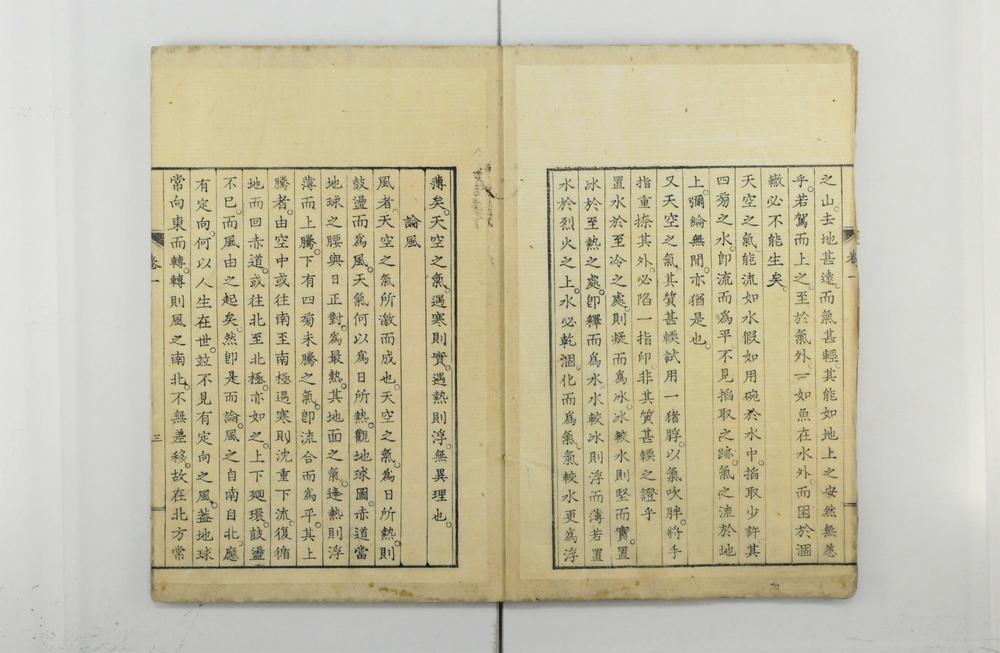 之山。去地甚遠。而氣甚輕。其能如地上之安然無恙
乎。若駕而上之。至於氣外。一如魚在水外。而困於涸
轍必不能生矣。
天空之氣能流如水假如用碗於水中。搯取少許。其
四旁之水。卽流而爲平。不見搯取之跡。氣之流於地
上。彌綸無間。亦猶是也。
又天空之氣。其質甚輭。試用一猪脬。以氣吹胖。將手
指重捺其外。必陷一指印。非其質甚輭之證乎
置水於至冷之處。則凝而爲冰。冰較水則堅而實。置
冰於至熱之處。卽釋而爲水。水較冰則浮而薄。若置
水於烈火之上。水必乾涸。化而爲氣。氣較水更爲浮
薄矣。天空之氣。遇寒則實。遇熱則浮。無異理也。
論風
風者。天空之氣所激而成也。天空之氣。爲日所熱。則
鼓盪而爲風。天氣何以爲日所熱。觀地球圖。赤道當
地球之腰。與日正對。爲最熱。其地面之氣。逢熱則浮
薄而上騰。下有四旁未騰之氣。卽流合而爲平。其上
騰者。由空中或往南至南極。遇寒則沈重下流。復循
地而回赤道。或往北至北極。亦如之。上下廻環。鼓盪
不已。而風由之起矣。然卽是而論。風之自南自北。應
有定向。何以人生在世。竝不見有定向之風。葢地球
常向東而轉。轉則風之南北。不無差移。故在北方常
卷一
三
卷一